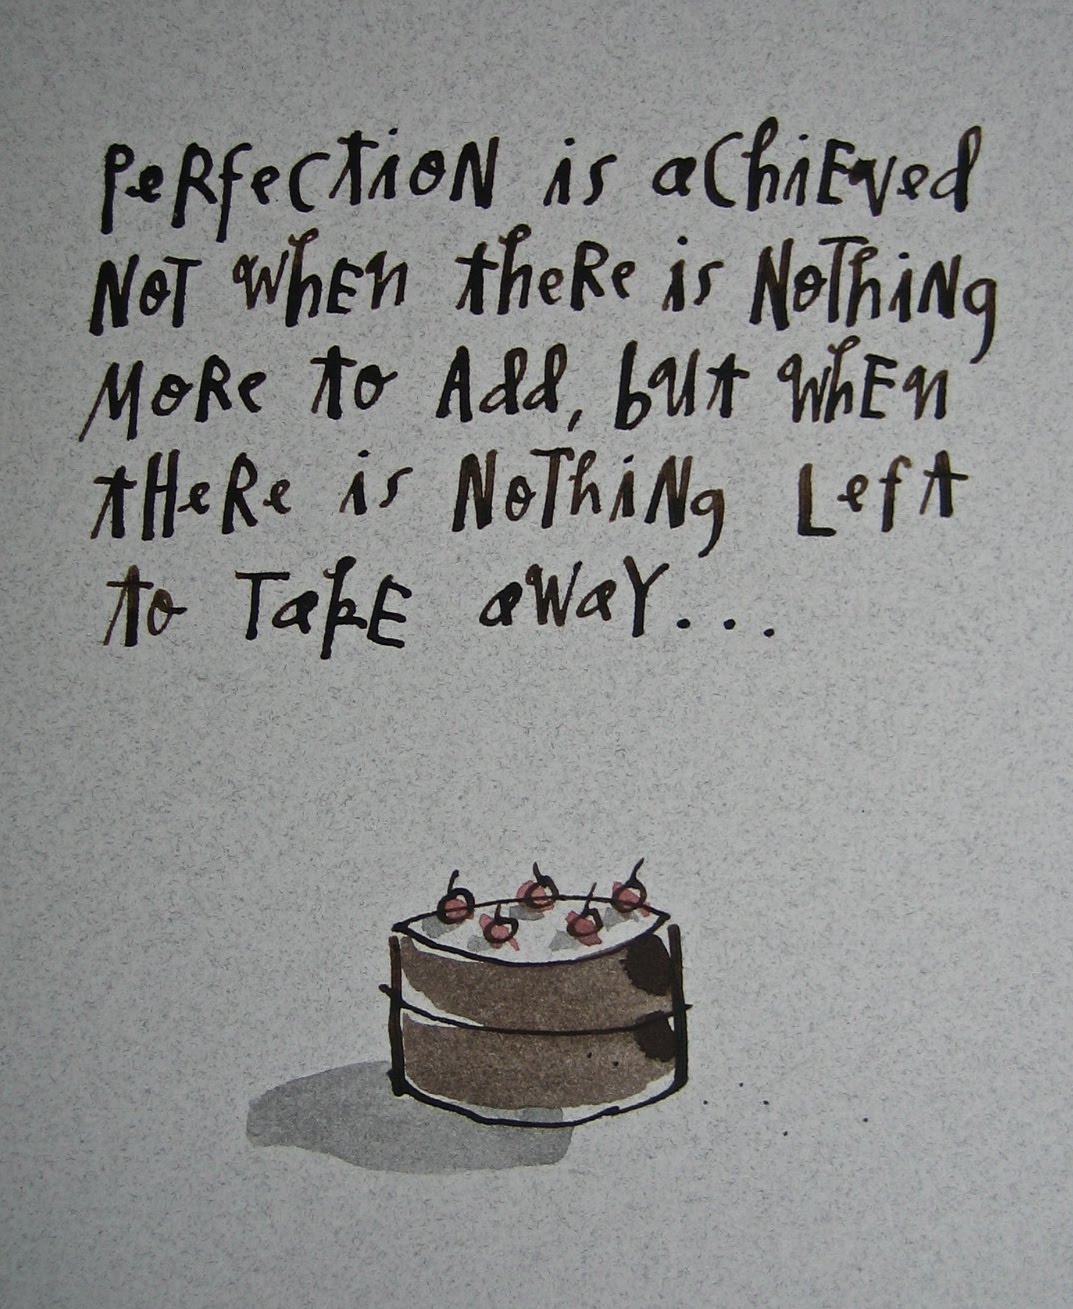 Perfection is achieved
not when there is nothing
more to add, but when
there is nothing left
to take away...